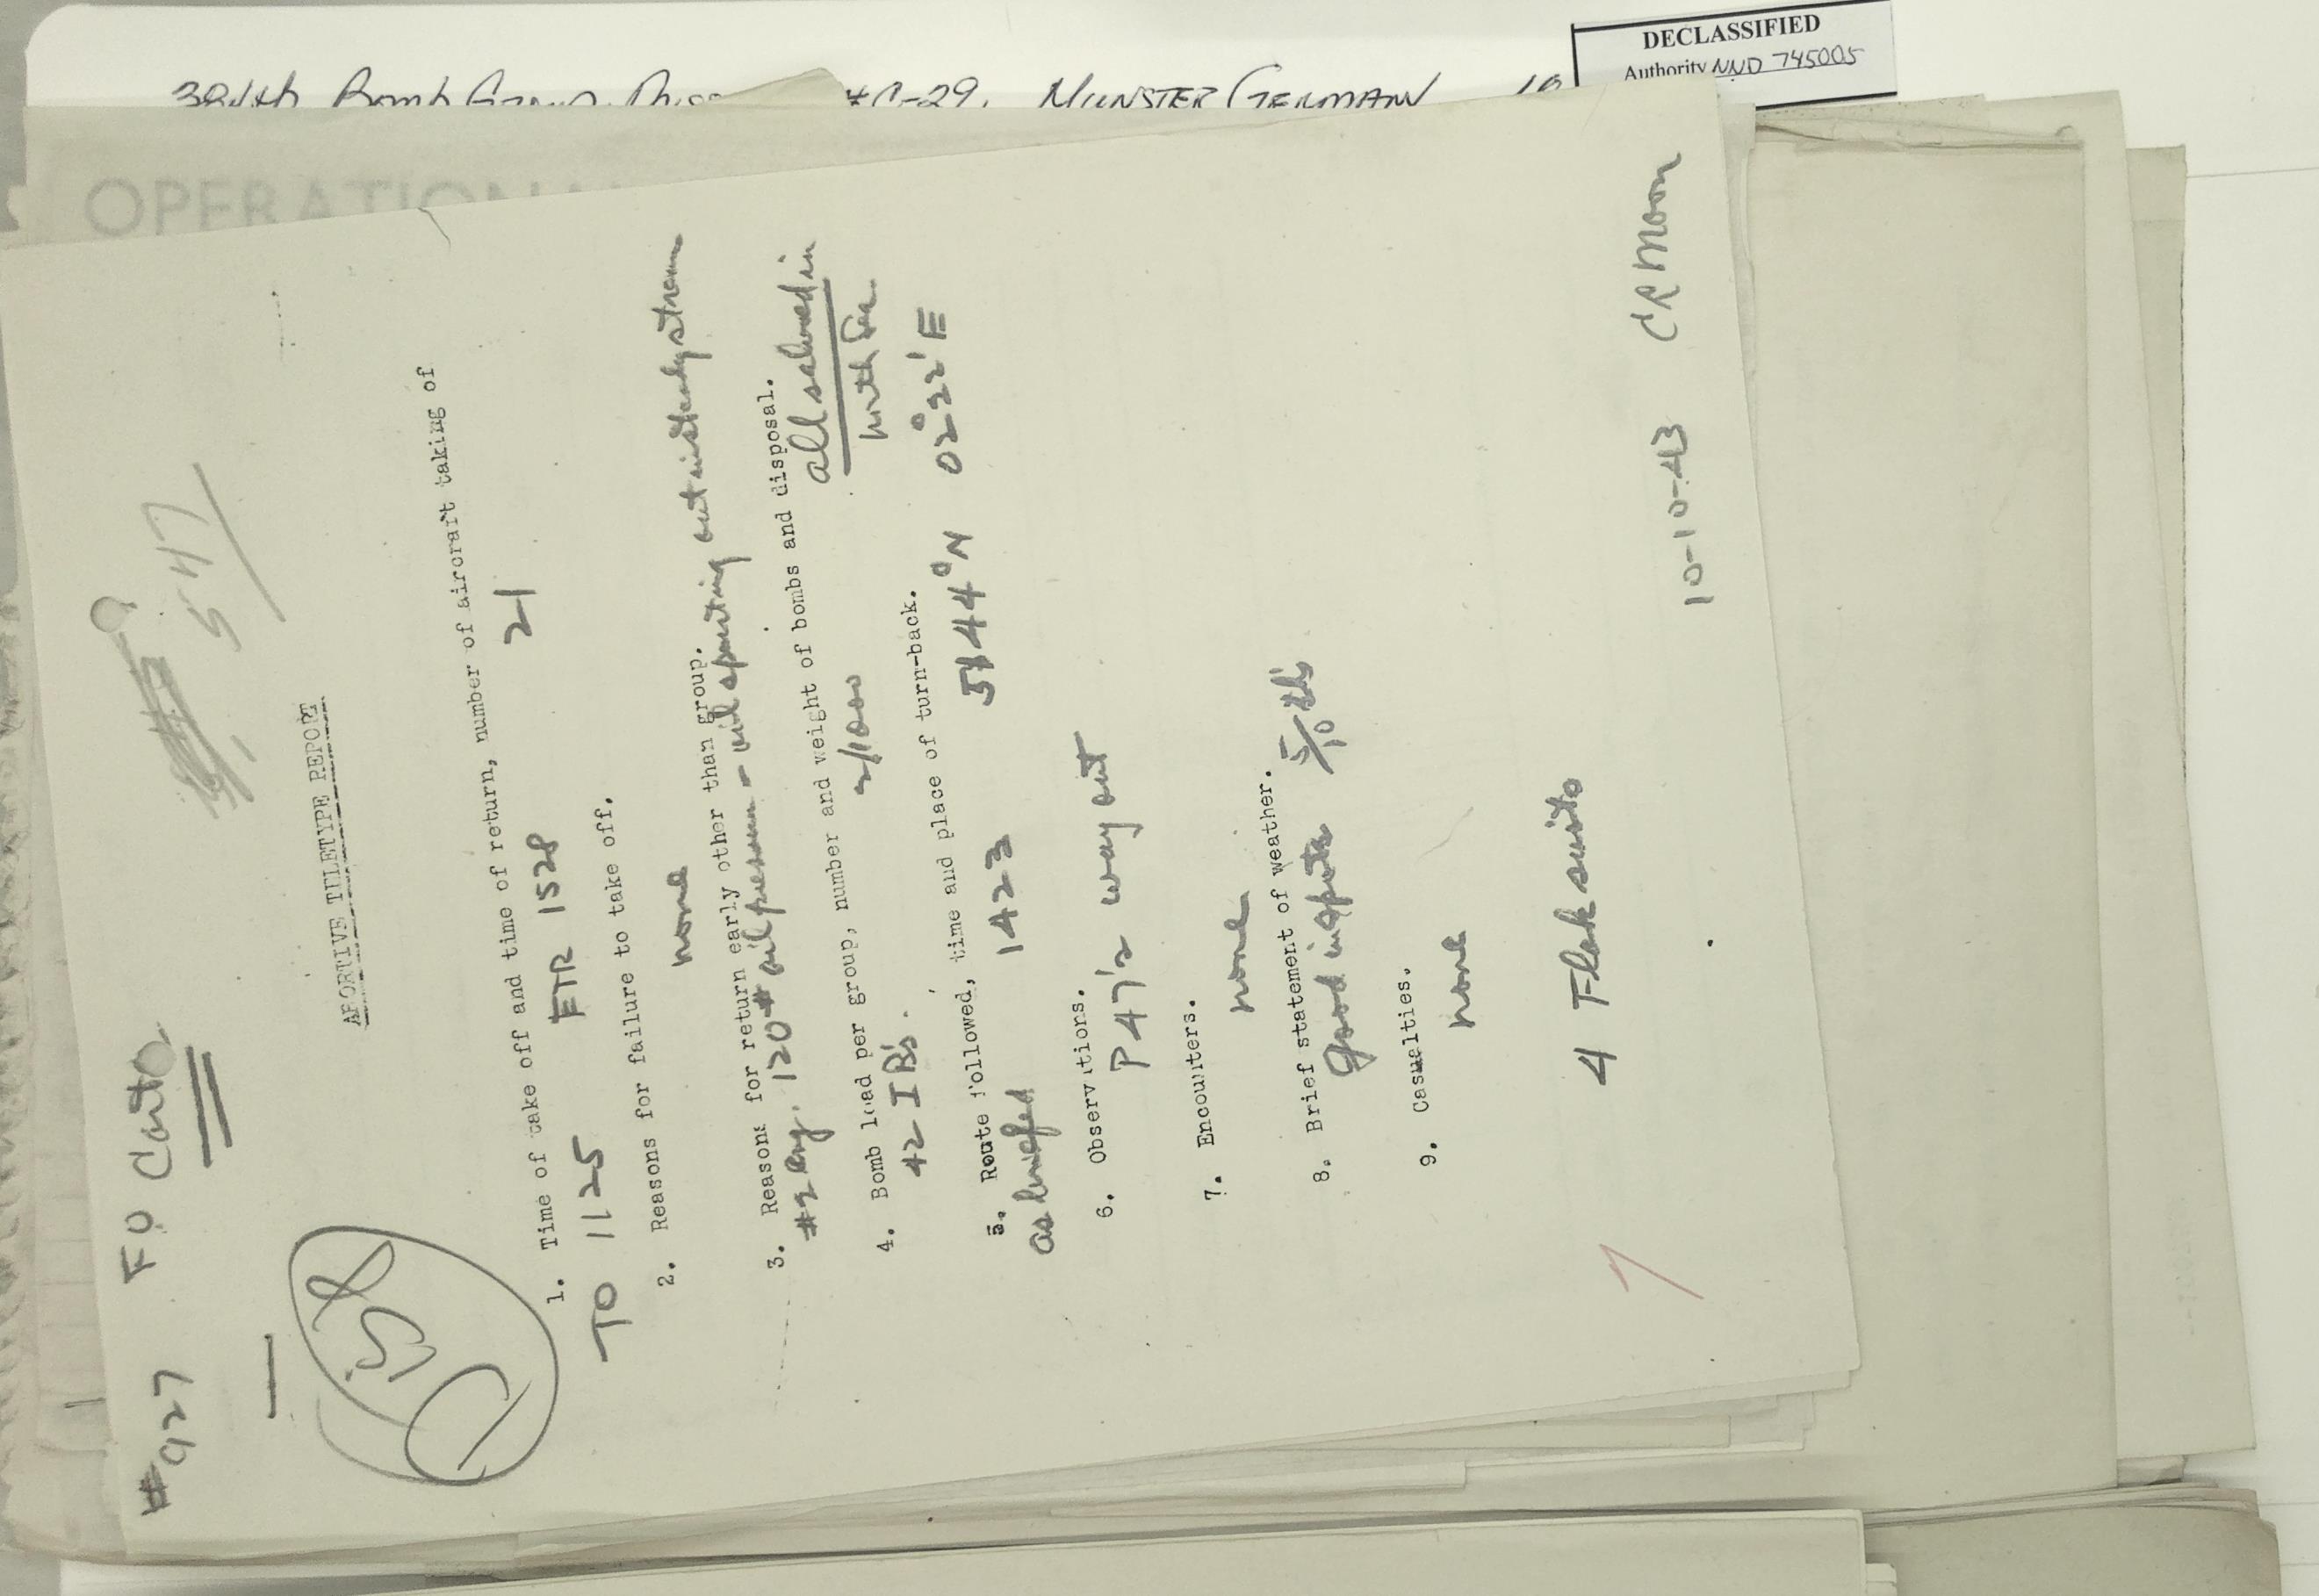 DECLASSIFIED
Authority NND 745005
384th Bomb Group, #C-29, MUNSTER GERMANY
OPERATIONAL
#927 FO Canto
547
ABORTIVE TELETYPE REPORT
1. Time of take off and time of return, number of aircraft taking of
TO 1125 ETR 1528 21
2. Reasons for failure to take off.
none
3. Reasons for return early other than group.
#2 eng. 120# oil pressure - oil spouting out in steady stream
4. Bomb load per group, number and weight of bombs and disposal.
42 IB's. 2/1000 all salvoed in
North Sea
5. Route followed, time and place of turn-back.
as briefed 1423 44°N 02°22'E
6. Observations.
P47's way out
7. Encounters.
none
8. Brief statement of weather.
good in spots 5/10 ths
9. Casualties.
none
4 Flak suits
10-10-43 CR Moon